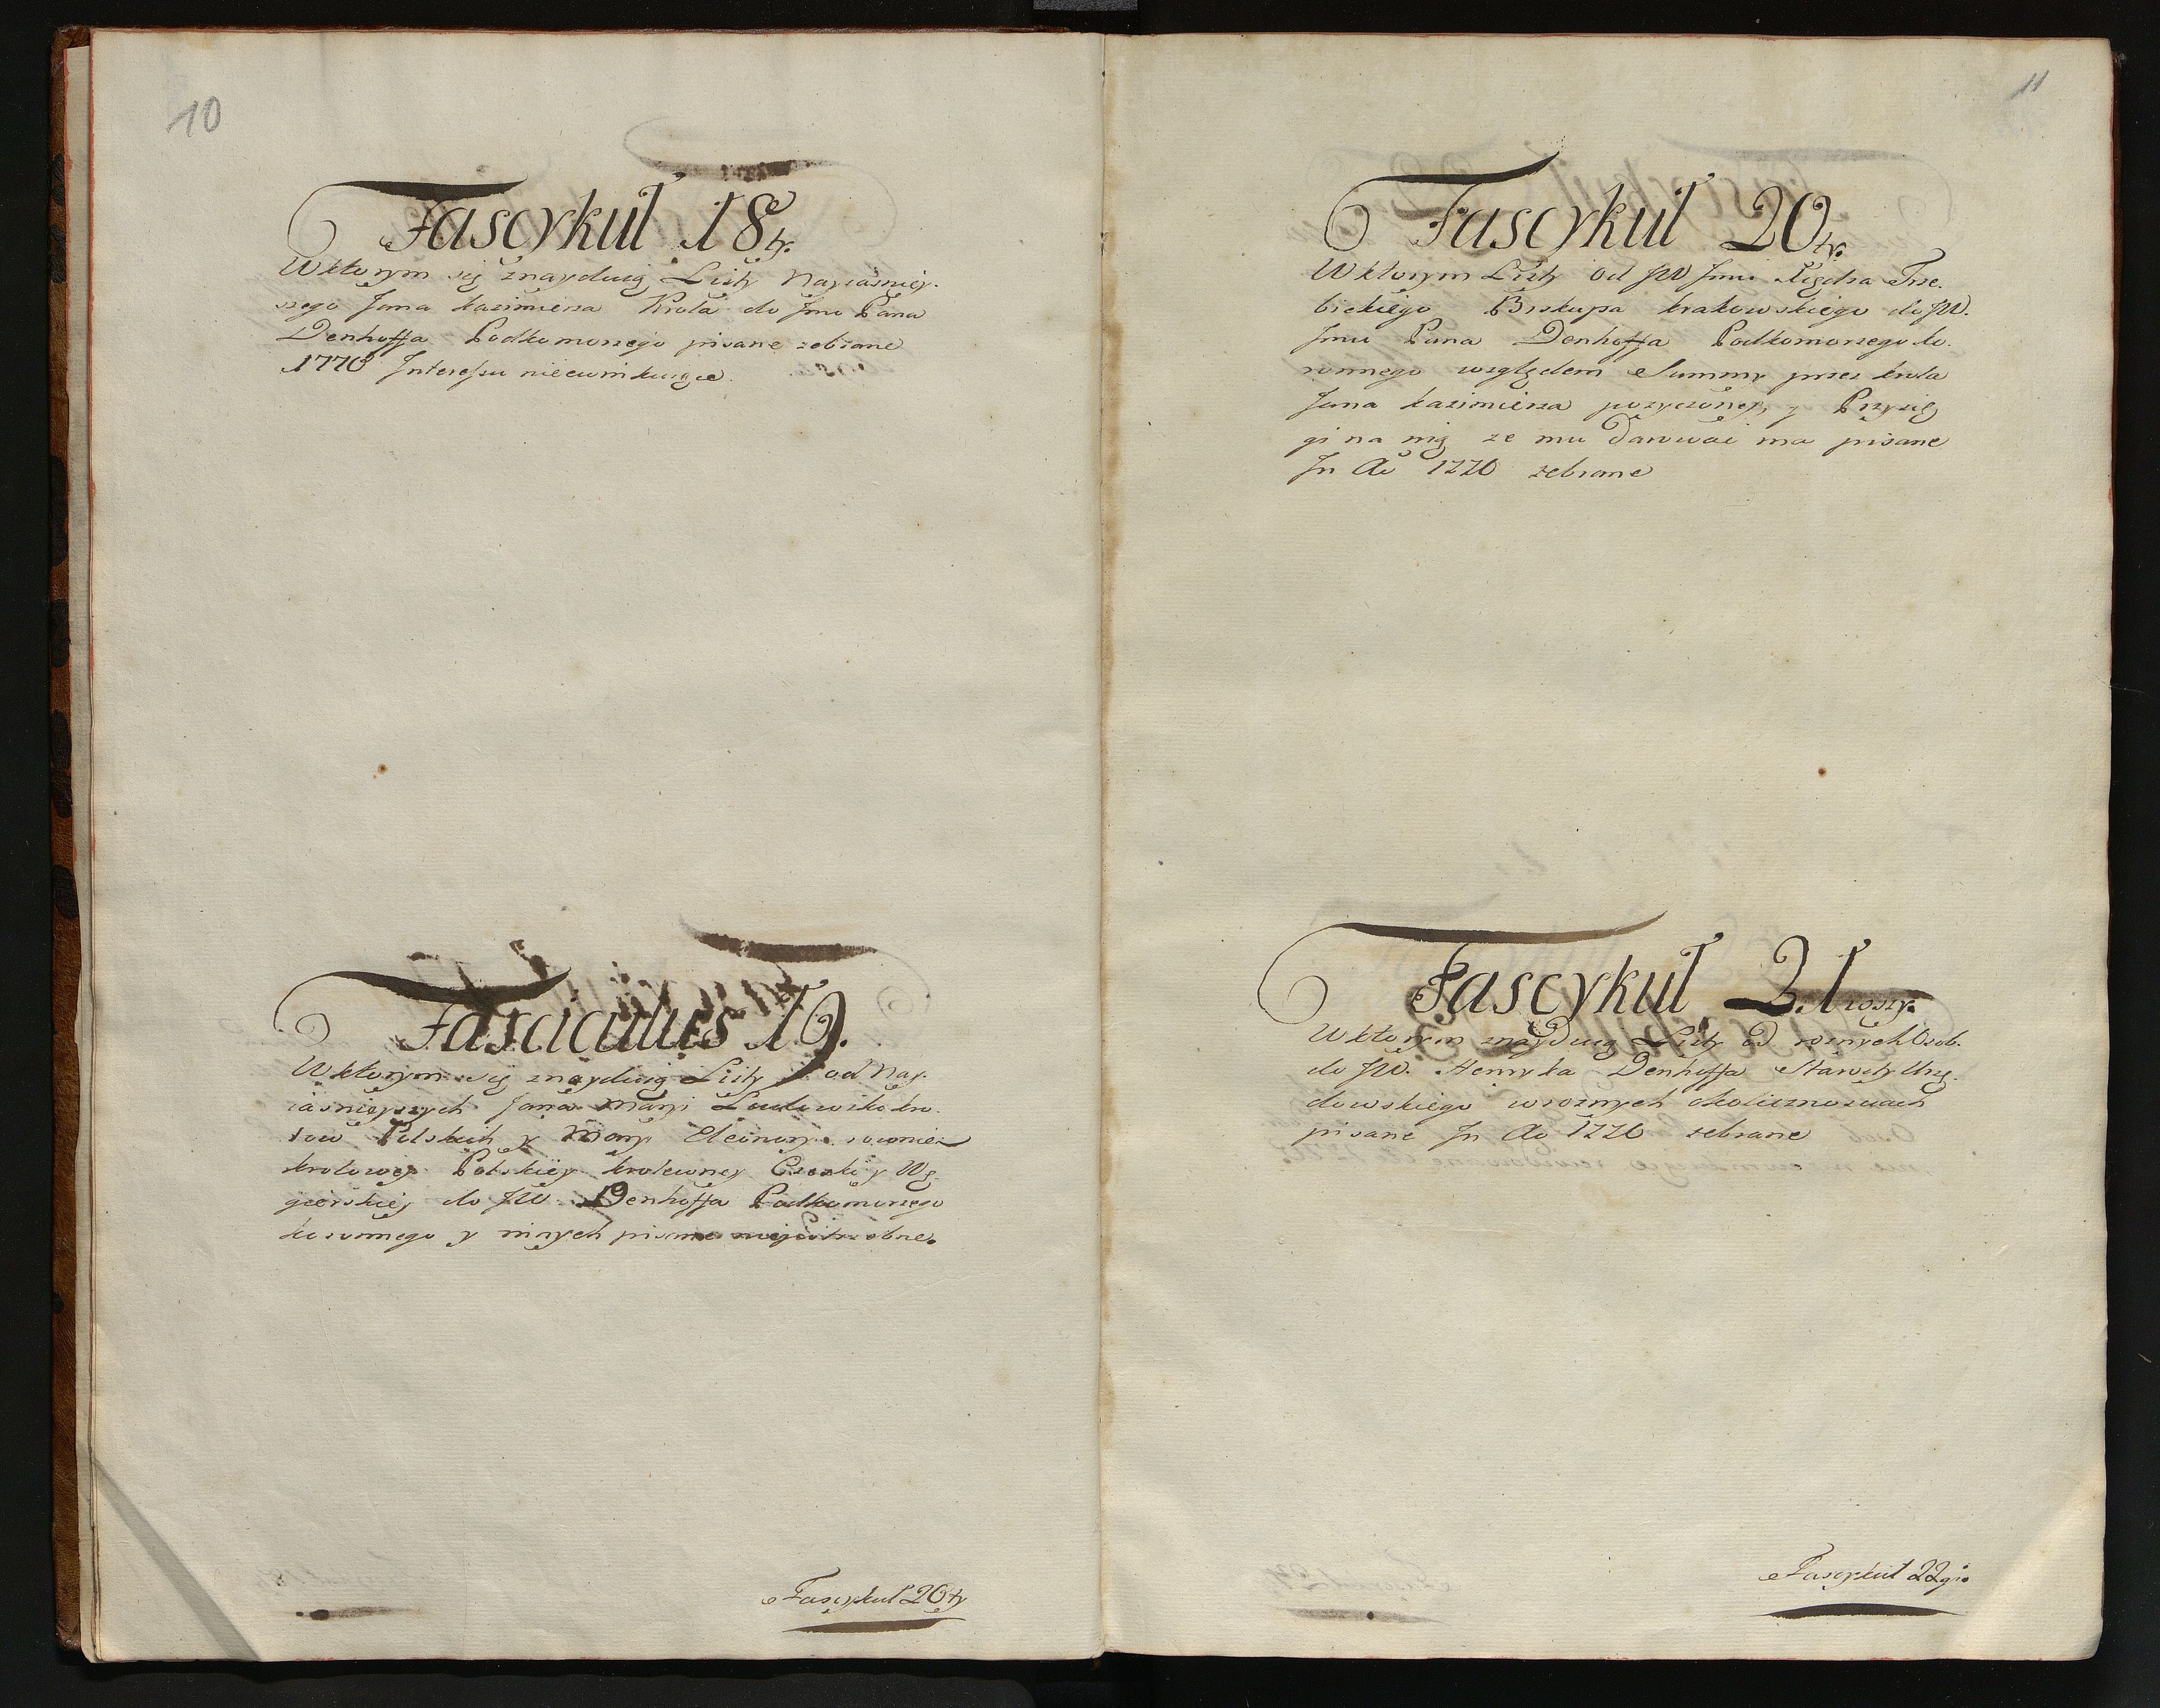 10
Fascykuł 18ty.
W ktorym się znayduią Listy Nayiaśniey-
szego Jana Kazimierza Krola do Jmci Pana
Denhoffa Podkomorzego pisane zebrane
1770 Interessu niiewinkuiące.
Fasciculus 19.
W ktorym się znayduią Listy od Nay-
iaśnieyszych Jana Maryi Ludowiki kro-
low Polskich y Maryi Eleonory rownie
krolowey Polskiey krolewney Czeski y Wę-
gierskiey do JW Denhoffa Podkomorzego
koronnego y innych pisane
Fascykuł 20ty
11
Fascykuł 20ty.
W ktorym Listy od JW Jmci Xiędza Trze-
bickiego Biskupa krakowskiego do JW.
Jmci Pana Denhoffa Podkomorzego ko-
ronnego względem Summy przez krola
Jana Kazimierza pozyczoney, y Przysię
gi na nię ze mu darować ma pisane
In Ao 1770 zebrane
Fascykuł 21wszy.
W ktorym znayduią Listy od roznych Osob-
do JW. Henryka Denhoffa Starosty Urzę-
dowskiego w roznych okolicznosciach
pisane In Ao 1770 zebrane
Fascykuł 22gi